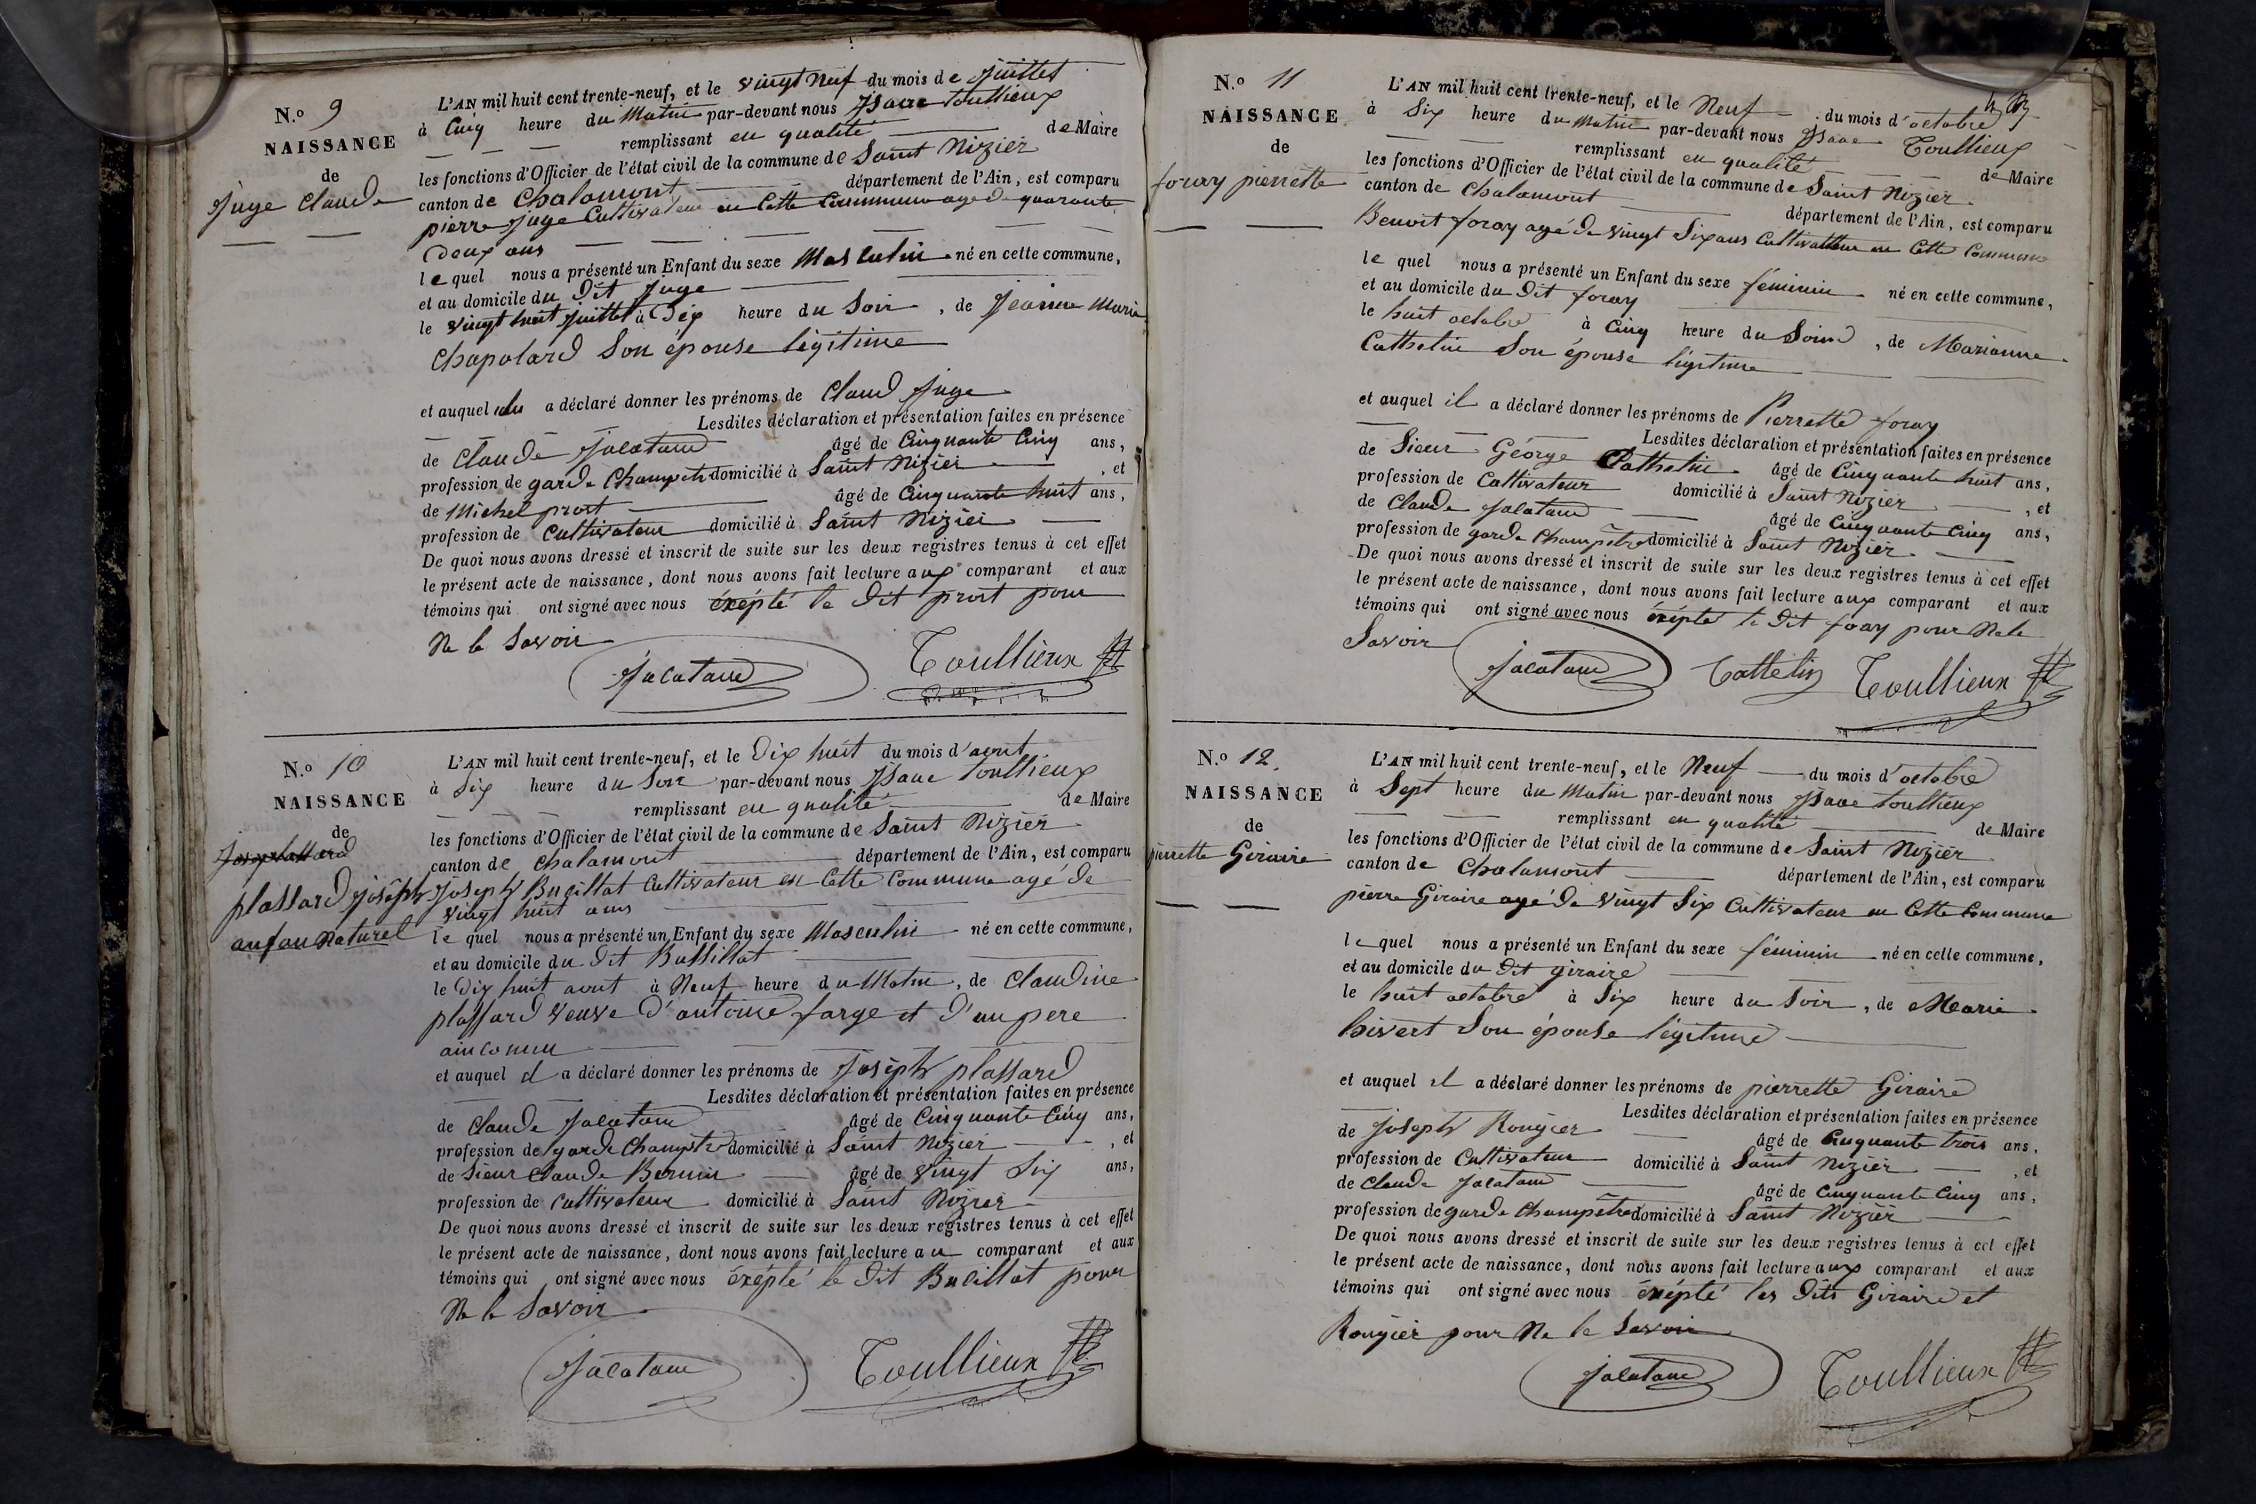 N.o 9
NAISSANCE
de
Juge Claude
L'AN mil huit cent trente-neuf, et le vingt neuf du mois de juillet
à Cinq heure du Matin par-devant nous Isaac Toullieux
remplissant en qualité de Maire
les fonctions d'Officier de l'état civil de la commune de Saint Nizier
canton de Chalamont département de l'Ain, est comparu
pierre Juge Cultivateur en Cette Commune agé de quarante
Deux ans
le quel nous a présenté un Enfant du sexe Masculin né en cette commune,
et au domicile du Dit Juge
le vingt huit Juillet à Dix heure du Soir, de Jeanne Marie
Chapolard Son épouse légitime
et auquel a déclaré donner les prénoms de Claud Juge
Lesdites déclaration et présentation faites en présence
de Claude Jacatane âgé de Cinquante Cinq ans,
profession de garde Champetr domicilié à Saint Nizier, et
de Michel prost âgé de Cinquante huit ans,
profession de Cultivateur domicilié à Saint Nizier
De quoi nous avons dressé et inscrit de suite sur les deux registres tenus à cet effet
le présent acte de naissance, dont nous avons fait lecture aux comparant et aux
témoins qui ont signé avec nous éxépté le Dit prost pour
Ne le Savoir
Jacatane Toullieux
N.o 10
NAISSANCE
de
plassard joseph
anfan Naturel
L'AN mil huit cent trente-neuf, et le Dix huit du mois d'aout
à Six heure du Soir par-devant nous Isaac Toullieux
remplissant en qualité de Maire
les fonctions d'Officier de l'état civil de la commune de Saint Nizier
canton de Chalamont département de l'Ain, est comparu
Joseph Bucillat Cultivateur en Cette Commune agé de
vingt huit ans
le quel nous a présenté un Enfant du sexe Masculin né en cette commune,
et au domicile du Dit Bussillat
le Dix huit aout à Neuf heure du Matin, de Claudine
plassard Veuve D'antoine farge et D'un pere
ainconnu
et auquel il a déclaré donner les prénoms de Joseph plassard
Lesdites déclaration et présentation faites en présence
de Claude Jacatane âgé de Cinquante Cinq ans,
profession de garde Champetr domicilié à Saint Nizier, et
de Sieur Claude Bernin âgé de Vingt Six ans,
profession de Cultivateur domicilié à Saint Nizier
De quoi nous avons dressé et inscrit de suite sur les deux registres tenus à cet effet
le présent acte de naissance, dont nous avons fait lecture au comparant et aux
témoins qui ont signé avec nous éxépté le Dit Bucillat pour
Ne le Savoir
Jacatane Toullieux
N.o 11
NAISSANCE
de
foray pierrette
L'AN mil huit cent trente-neuf, et le Neuf du mois d'octobre
à Six heure du Matin par-devant nous Isaac Toullieux
remplissant en qualité de Maire
les fonctions d'Officier de l'état civil de la commune de Saint Nizier
canton de Chalamont département de l'Ain, est comparu
Benoit foray agé de vingt Six ans Cultivatteur en Cette Commune
le quel nous a présenté un Enfant du sexe féminin né en cette commune,
et au domicile du Dit foray
le huit octobre à Cinq heure du Soir, de Marianne
Cathelin Son épouse légitime
et auquel il a déclaré donner les prénoms de Pierrette foray
Lesdites déclaration et présentation faites en présence
de Sieur George Cathelin âgé de Cinquante huit ans,
profession de Cultivateur domicilié à Saint Nizier, et
de Claude Jacatane âgé de Cinquante Cinq ans,
profession de garde Champêtre domicilié à Saint Nizier
De quoi nous avons dressé et inscrit de suite sur les deux registres tenus à cet effet
le présent acte de naissance, dont nous avons fait lecture aux comparant et aux
témoins qui ont signé avec nous éxépté le Dit foray pour Nele
Savoir
Jacatane Cattelin Toullieux
N.o 12
NAISSANCE
de
pierrette Giraire
L'AN mil huit cent trente-neuf, et le Neuf du mois d'octobre
à Sept heure du Matin par-devant nous Isaac Toullieux
remplissant en qualité de Maire
les fonctions d'Officier de l'état civil de la commune de Saint Nizier
canton de Chalamont département de l'Ain, est comparu
pierre Giraire agé de vingt Six Cultivateur en Cette Commune
le quel nous a présenté un Enfant du sexe féminin né en cette commune,
et au domicile du Dit giraire
le huit octobre à Six heure du Soir, de Marie
hivert Son épouse légitime
et auquel il a déclaré donner les prénoms de pierrette Giraire
Lesdites déclaration et présentation faites en présence
de Joseph Rougier âgé de Cinquante trois ans,
profession de Cultivateur domicilié à Saint Nizier, et
de Claude Jacatane âgé de Cinquante Cinq ans,
profession de garde Champêtre domicilié à Saint Nizier
De quoi nous avons dressé et inscrit de suite sur les deux registres tenus à cet effet
le présent acte de naissance, dont nous avons fait lecture aux comparant et aux
témoins qui ont signé avec nous éxépté les Dits Giraire et
Rougier pour Ne le Savoir
Jacatane Toullieux